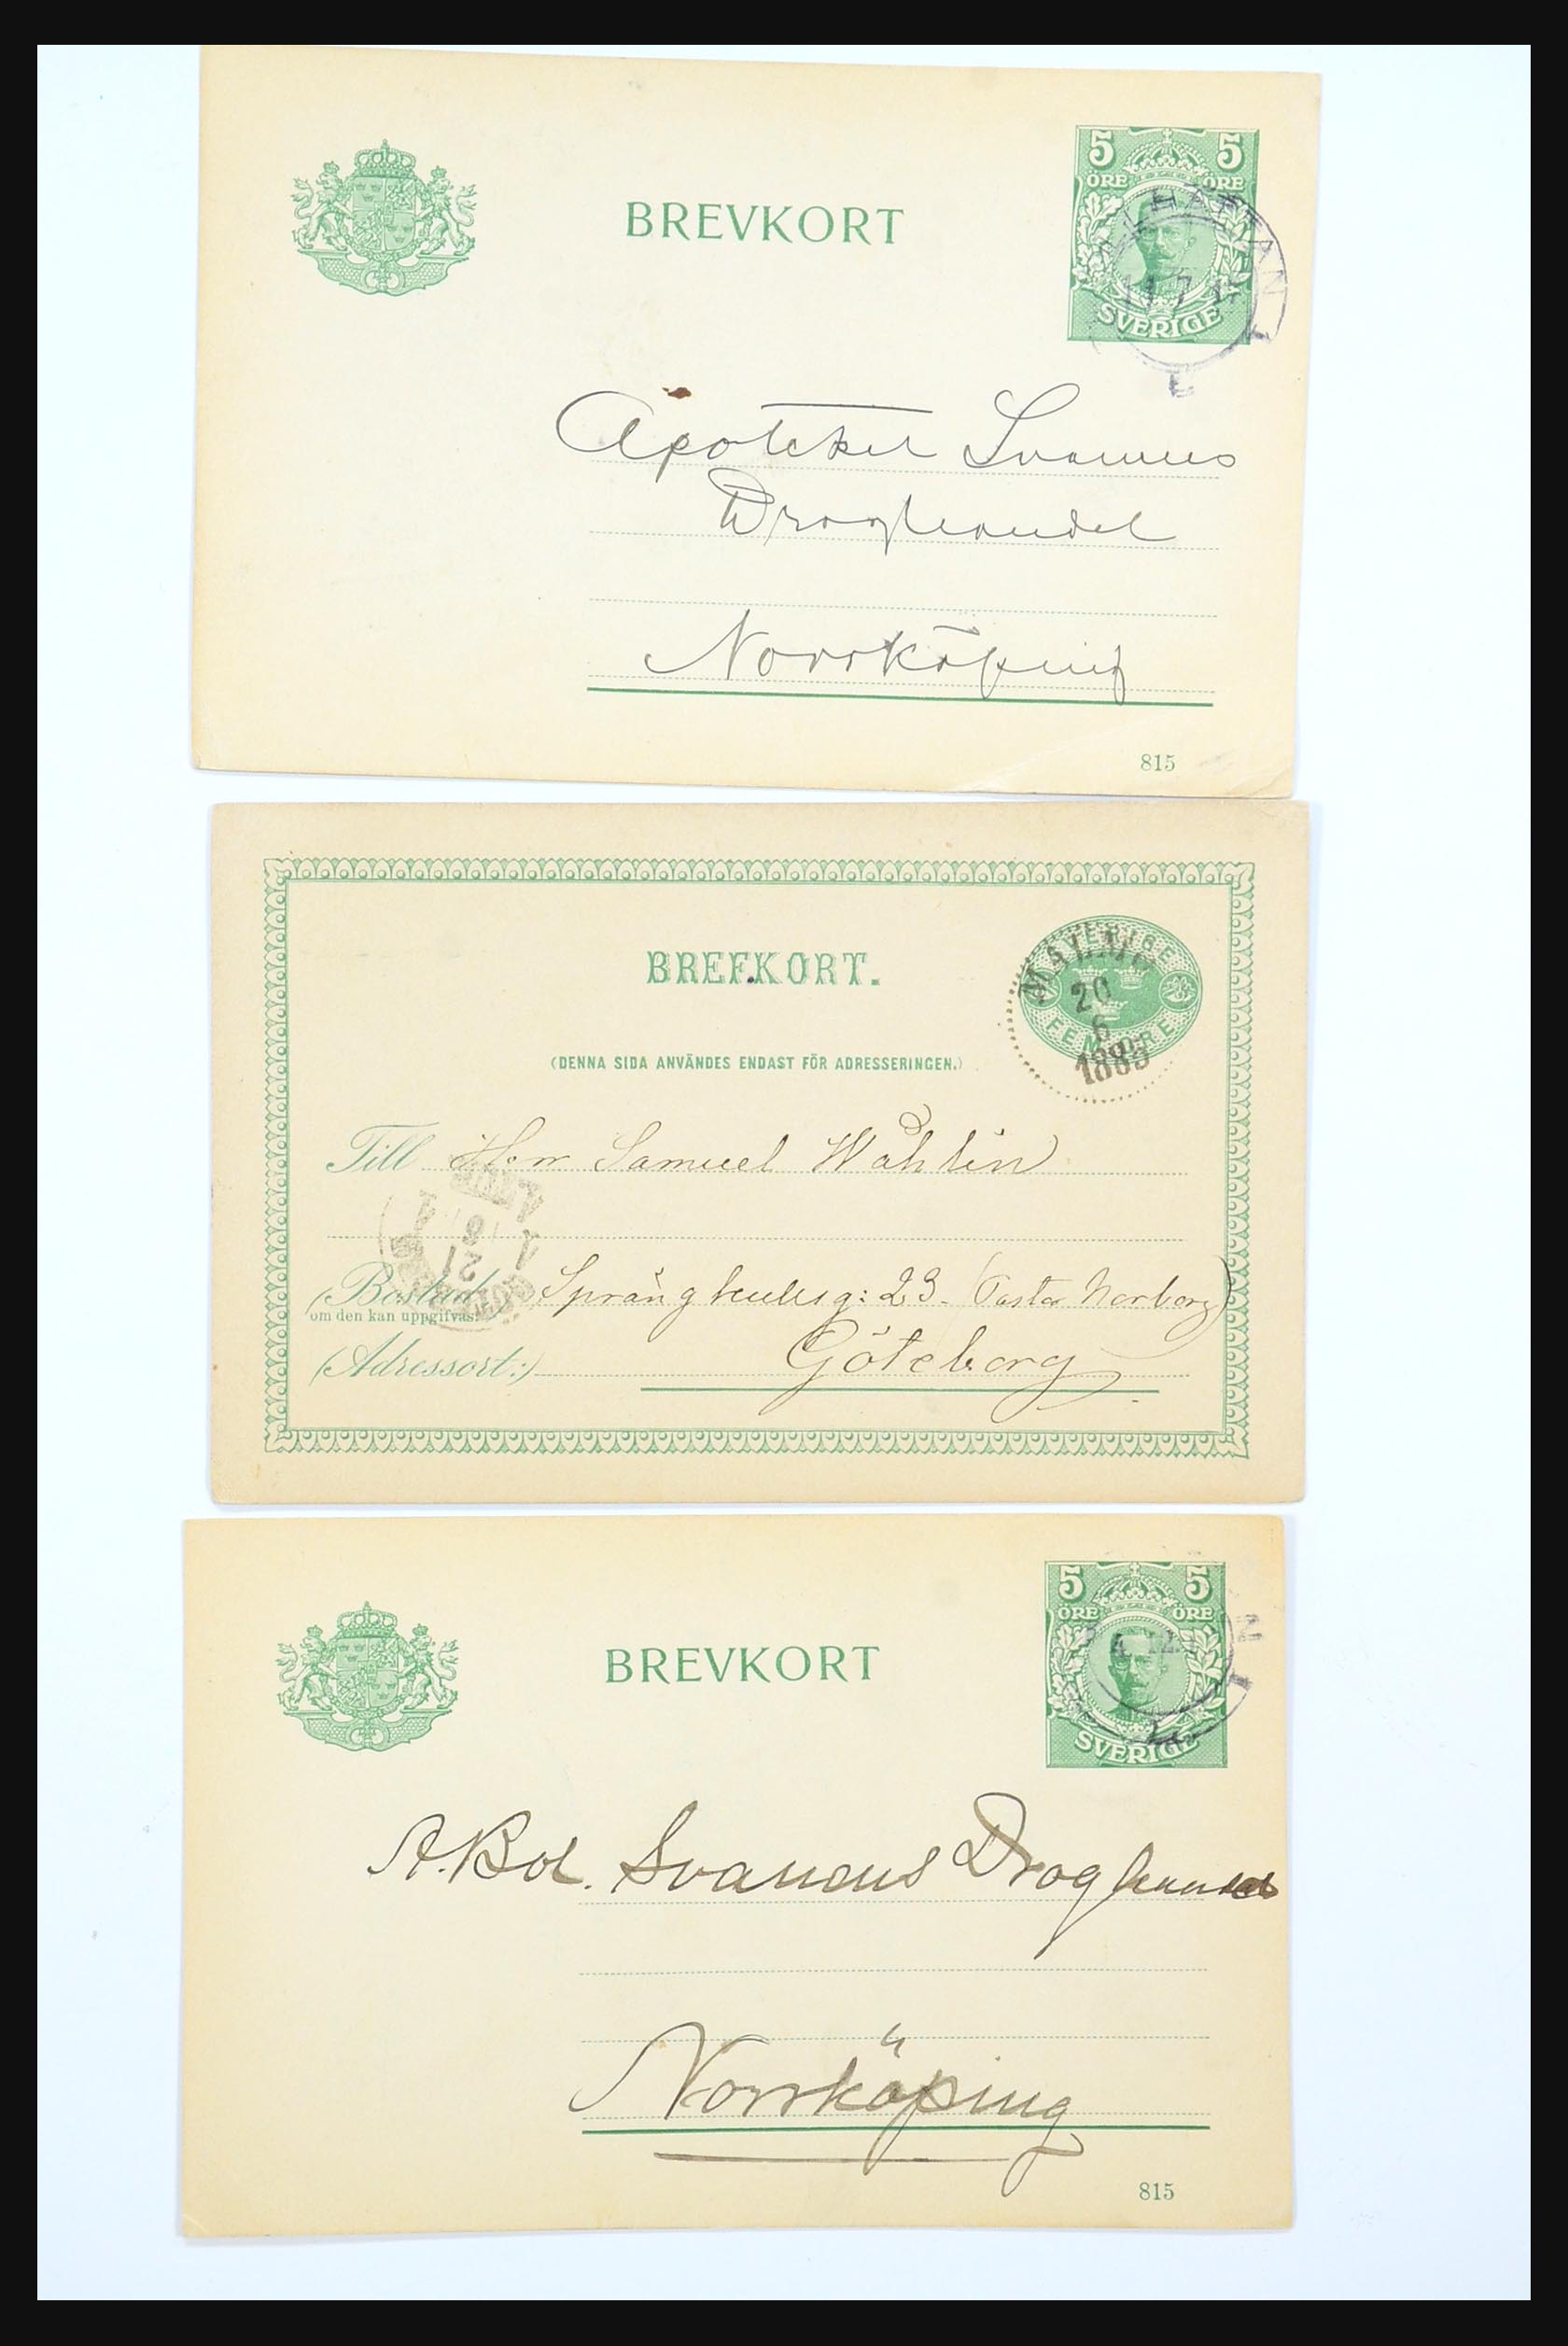 5 5
ÖRE ÖRE
BREVKORT
LHÄTTAN
11 7
SVERIGE
Apoteket Svanens
Droghandel
Norrköping
815
SVERIGE
BREFKORT.
MALMÖ
20
6
1885
FEM ÖRE
(DENNA SIDA ANVÄNDES ENDAST FÖR ADRESSERINGEN.)
Till Herr Samuel Wåhlin
(Bostad, Sprängkullsg: 23 (Pastor Norborg)
om den kan uppgifvas:
(Adressort:) Göteborg
5 5
ÖRE ÖRE
BREVKORT
4 12
SVERIGE
A.Bol. Svanens Droghandel
Norrköping
815